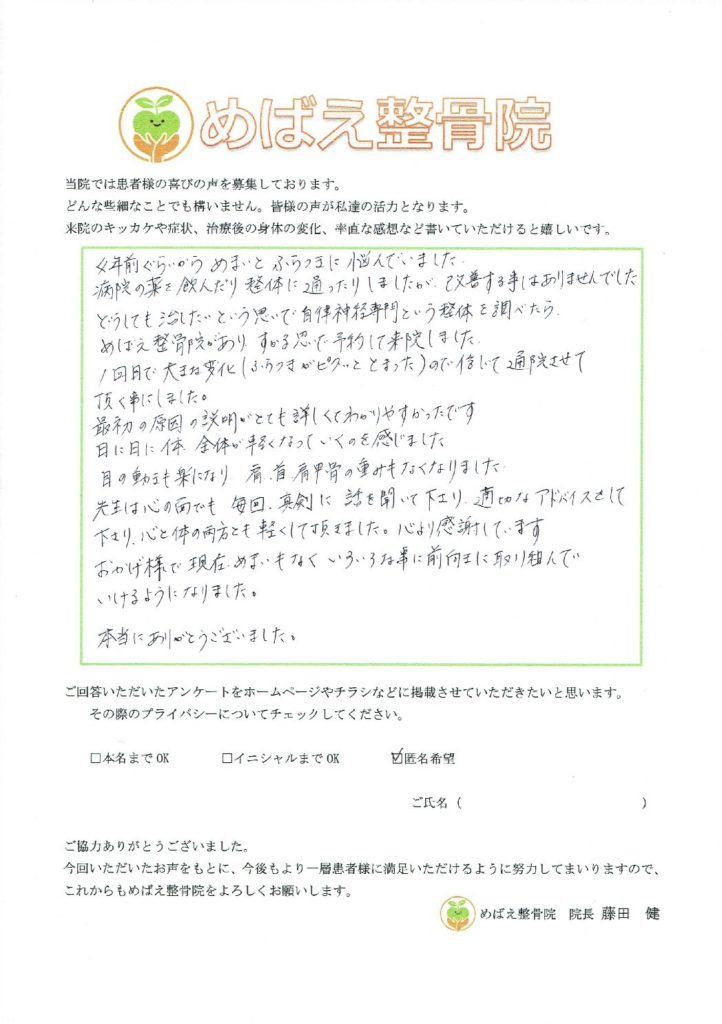 めばえ整骨院
当院では患者様の喜びの声を募集しております。
どんな些細なことでも構いません。皆様の声が私達の活力となります。
来院のキッカケや症状、治療後の身体の変化、率直な感想など書いていただけると嬉しいです。
4年前ぐらいから めまいと ふらつきに 悩んでいました。
病院の薬を飲んだり 整体に通ったりしましたが、改善する事はありませんでした
どうしても治したいという思いで 自律神経専門という整体を調べたら、
めばえ整骨院があり すがる思いで 予約して来院しました。
1回目で大きな変化(ふらつきがピタッととまった)ので信じて通院させて
頂く事にしました。
最初の原因の説明がとても詳しくてわかりやすかったです
日に日に体、全体が軽くなっていくのを感じました
目の動きも楽になり 肩、首、肩甲骨の重みもなくなりました。
先生は心の面でも 毎回、真剣に話を聞いて下さり、適切なアドバイスをして
下さり、心と体の両方とも軽くして頂きました。心より感謝しています
おかげ様で現在、めまいもなく いろいろな事に前向きに取り組んで
いけるようになりました。
本当にありがとうございました。
ご回答いただいたアンケートをホームページやチラシなどに掲載させていただきたいと思います。
その際のプライバシーについてチェックしてください。
□本名までOK □イニシャルまでOK ☑匿名希望
ご氏名( )
ご協力ありがとうございました。
今回いただいたお声をもとに、今後もより一層患者様に満足いただけるように努力してまいりますので、
これからもめばえ整骨院をよろしくお願いします。
めばえ整骨院 院長 藤田 健